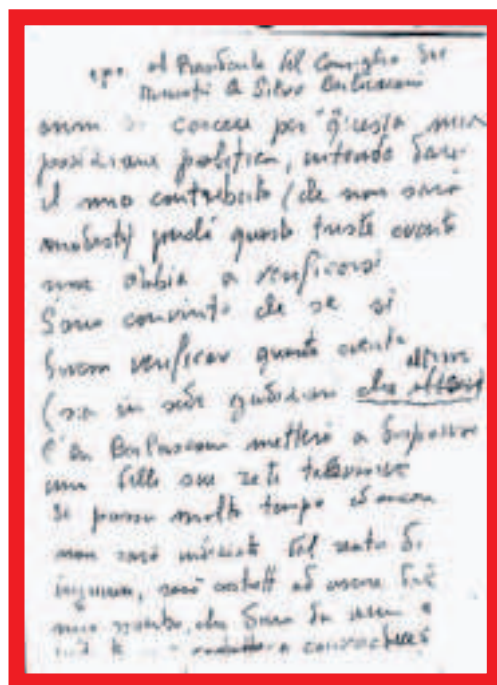 e p.c. al Presidente del Consiglio dei
Ministri On Silvio Berlusconi
anni di carcere per questa mia
posizione politica, intendo dare
il mio contributo (che non sarà
modesto) perché questo triste evento
non abbia a verificarsi
Sono convinto che se si
dovesse verificare questo evento
(sia in sede giudiziaria che altrove
l'On Berlusconi metterà a disposizione
una delle sue reti televisive
Se passa molto tempo ed ancora
non sarò indiziato del reato di
ingiuria, sarò costretto ad uscire dal
mio riserbo che dura da anni e
a convocherò